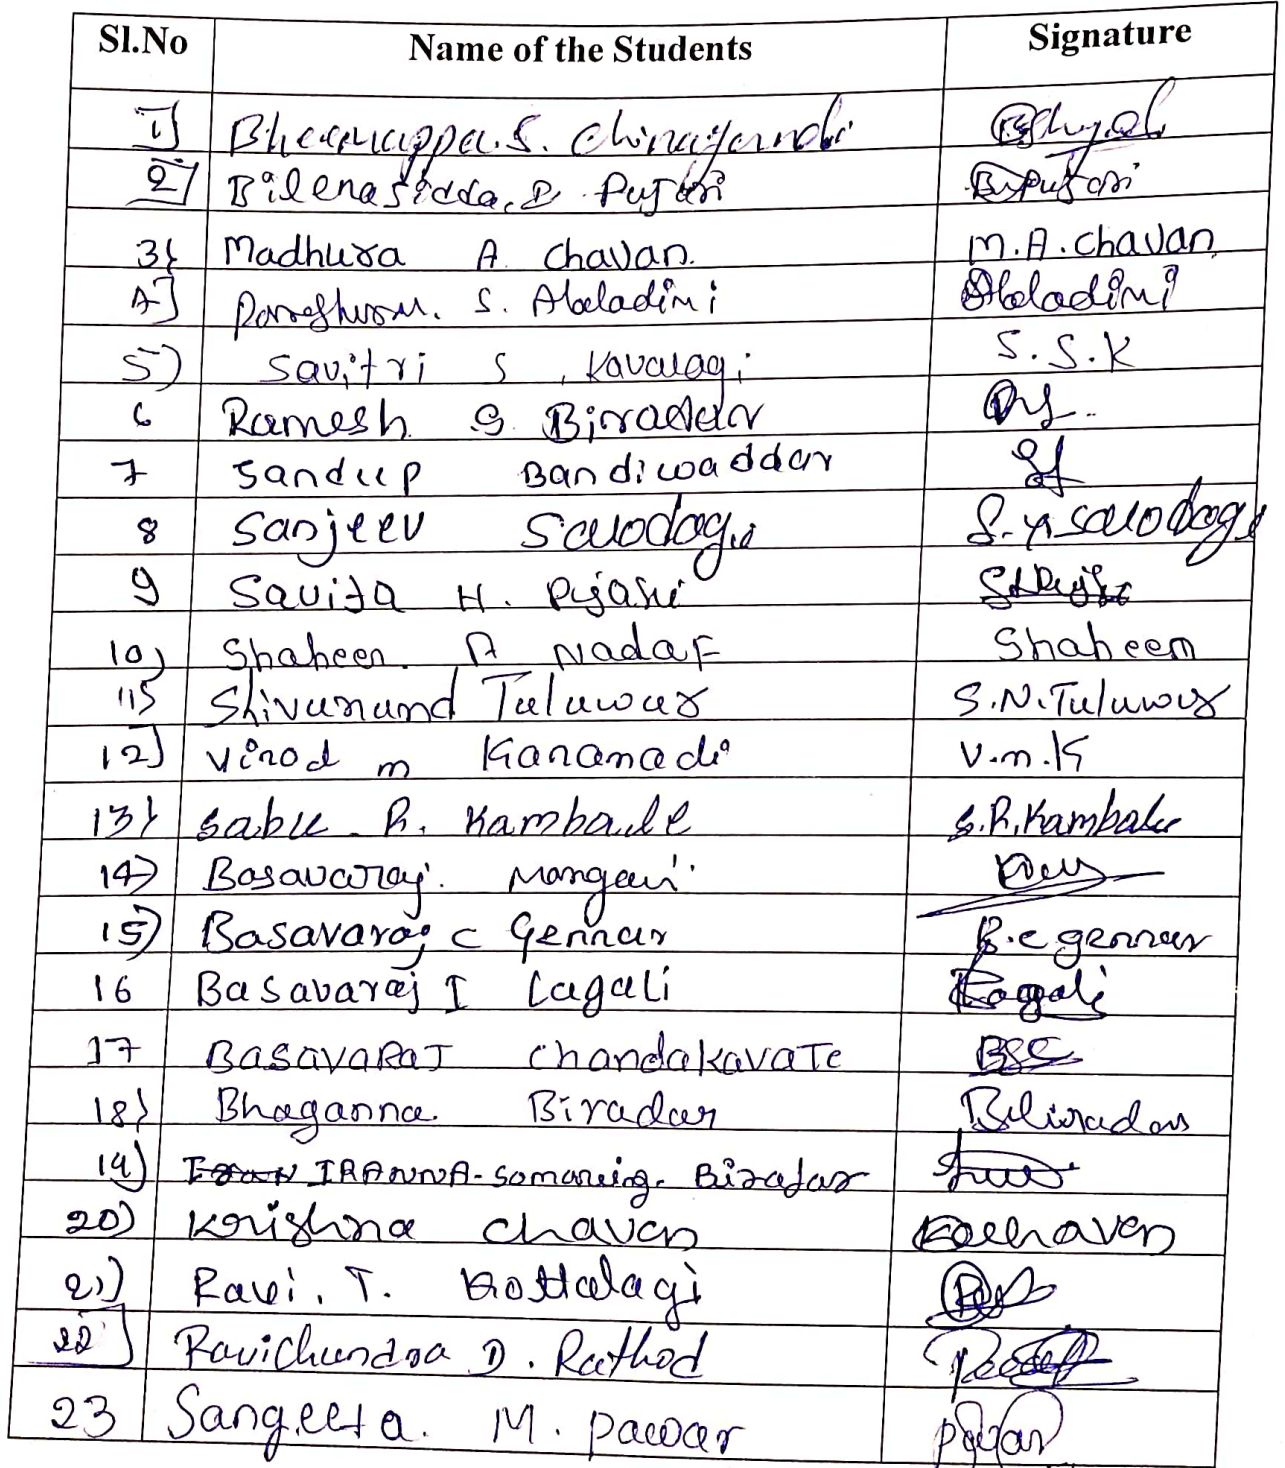 Sl.No Name of the Students Signature
1) Bheemappa.S.
2) Bilenasidda. D. Pujari B.Pujari
3} Madhura A. Chavan. M.A.Chavan
4] S. Abaladini Abaladini
5) Savitri S. Kavalagi S.S.K
6 Ramesh S. Biradar
7 Sandeep Bandiwaddar
8 Sanjeev Savodagi S.Y Savodagi
9 Savita H. Pujari
10) Shaheen. A Nadaf Shaheen
11) Shivanand Taluwar S.N.Taluwar
12] Vinod m Kanamadi V.m.K
13} Sabu R. Kambale S.R.Kambale
14) Basavaraj. Mangavi
15) Basavaraj C Gennar B.C gennar
16 Basavaraj I Lagali Lagali
17 BASAVARAJ ChandakavaTe BSC
18} Bhaganna. Biradar Biradar
19) IRANNA- Somaning. Biradar
20) Krishna Chavan Chavan
21) Ravi. T. Hottalagi
22] Ravichandra D. Rathod
23 Sangeeta. M. Pawar Pawar